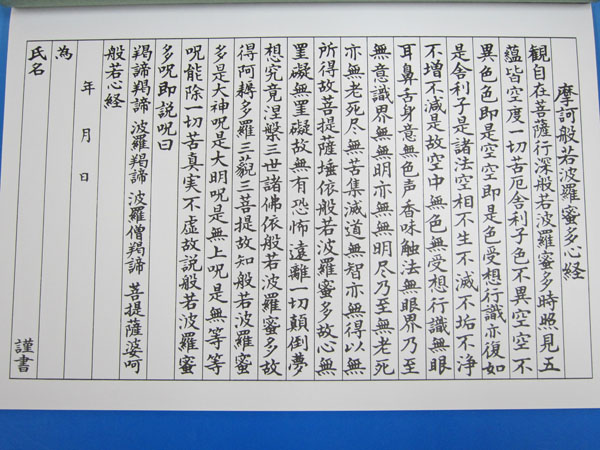 摩訶般若波羅蜜多心経
観自在菩薩行深般若波羅蜜多時照見五
蘊皆空度一切苦厄舎利子色不異空空不
異色色即是空空即是色受想行識亦復如
是舎利子是諸法空相不生不滅不垢不浄
不増不減是故空中無色無受想行識無眼
耳鼻舌身意無色声香味触法無眼界乃至
無意識界無無明亦無無明尽乃至無老死
亦無老死尽無苦集滅道無智亦無得以無
所得故菩提薩埵依般若波羅蜜多故心無
罣礙無罣礙故無有恐怖遠離一切顛倒夢
想究竟涅槃三世諸佛依般若波羅蜜多故
得阿耨多羅三藐三菩提故知般若波羅蜜
多是大神呪是大明呪是無上呪是無等等
呪能除一切苦真実不虚故説般若波羅蜜
多呪即説呪曰
羯諦羯諦 波羅羯諦 波羅僧羯諦 菩提薩婆呵
般若心経
年 月 日
為
氏名 謹書